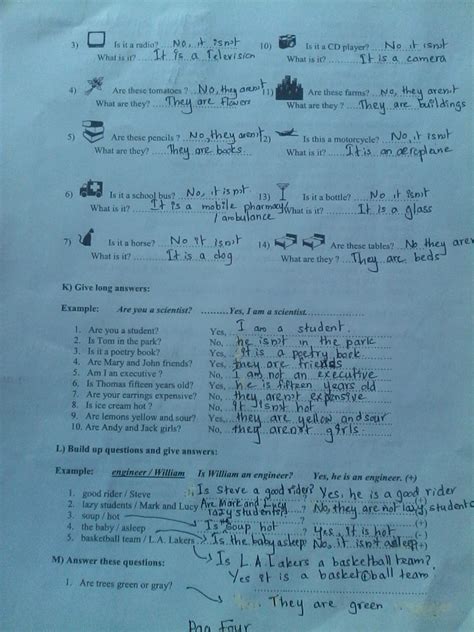 3) Is it a radio? No, it isnot 10) Is it a CD player? No it isnot
What is it? It is a Television What is it? It is a camera
4) Are these tomatoes ? No, they arenot 11) Are these farms? No, they arenot
What are they? They are flowers What are they? They are buildings
5) Are these pencils ? No, they arenot 12) Is this a motorcycle? No, it isnot
What are they? They are books What is it? It is an aeroplane
6) Is it a school bus? No, it is not. 13) Is it a bottle? No, it isnot
What is it? It is a mobile pharmacy What is it? It is a glass
/ ambulance
7) Is it a horse? No it isnot 14) Are these tables? No they aren
What is it? It is a dog What are they ? They are beds
K) Give long answers:
Example: Are you a scientist? Yes, I am a scientist.
1. Are you a student? Yes, I am a student.
2. Is Tom in the park? No, he isnot in the park
3. Is it a poetry book? Yes, it is a poetry book
4. Are Mary and John friends? Yes, they are friends
5. Am I an executive ? No, I am not an executive
6. Is Thomas fifteen years old? Yes, he is fifteen years old
7. Are your earrings expensive? No, they arenot expensive
8. Is ice cream hot ? No, it isnot hot
9. Are lemons yellow and sour? Yes, they are yellow and sour
10. Are Andy and Jack girls? No, they arenot girls
L) Build up questions and give answers:
Example: engineer / William Is William an engineer? Yes, he is an engineer. (+)
1. good rider / Steve Is Steve a good rider? Yes, he is a good rider
2. lazy students / Mark and Lucy Are Mark and Lucy lazy students? No, they are not lazy students
3. soup / hot Is soup hot ? Yes, it is hot (+)
4. the baby / asleep Is the baby asleep No, it isnot asleep
5. basketball team / L.A. Lakers Is L.A. Lakers a basketball team? (+)
Yes it is a basketball team.
M) Answer these questions:
1. Are trees green or gray? They are green
Pag Four